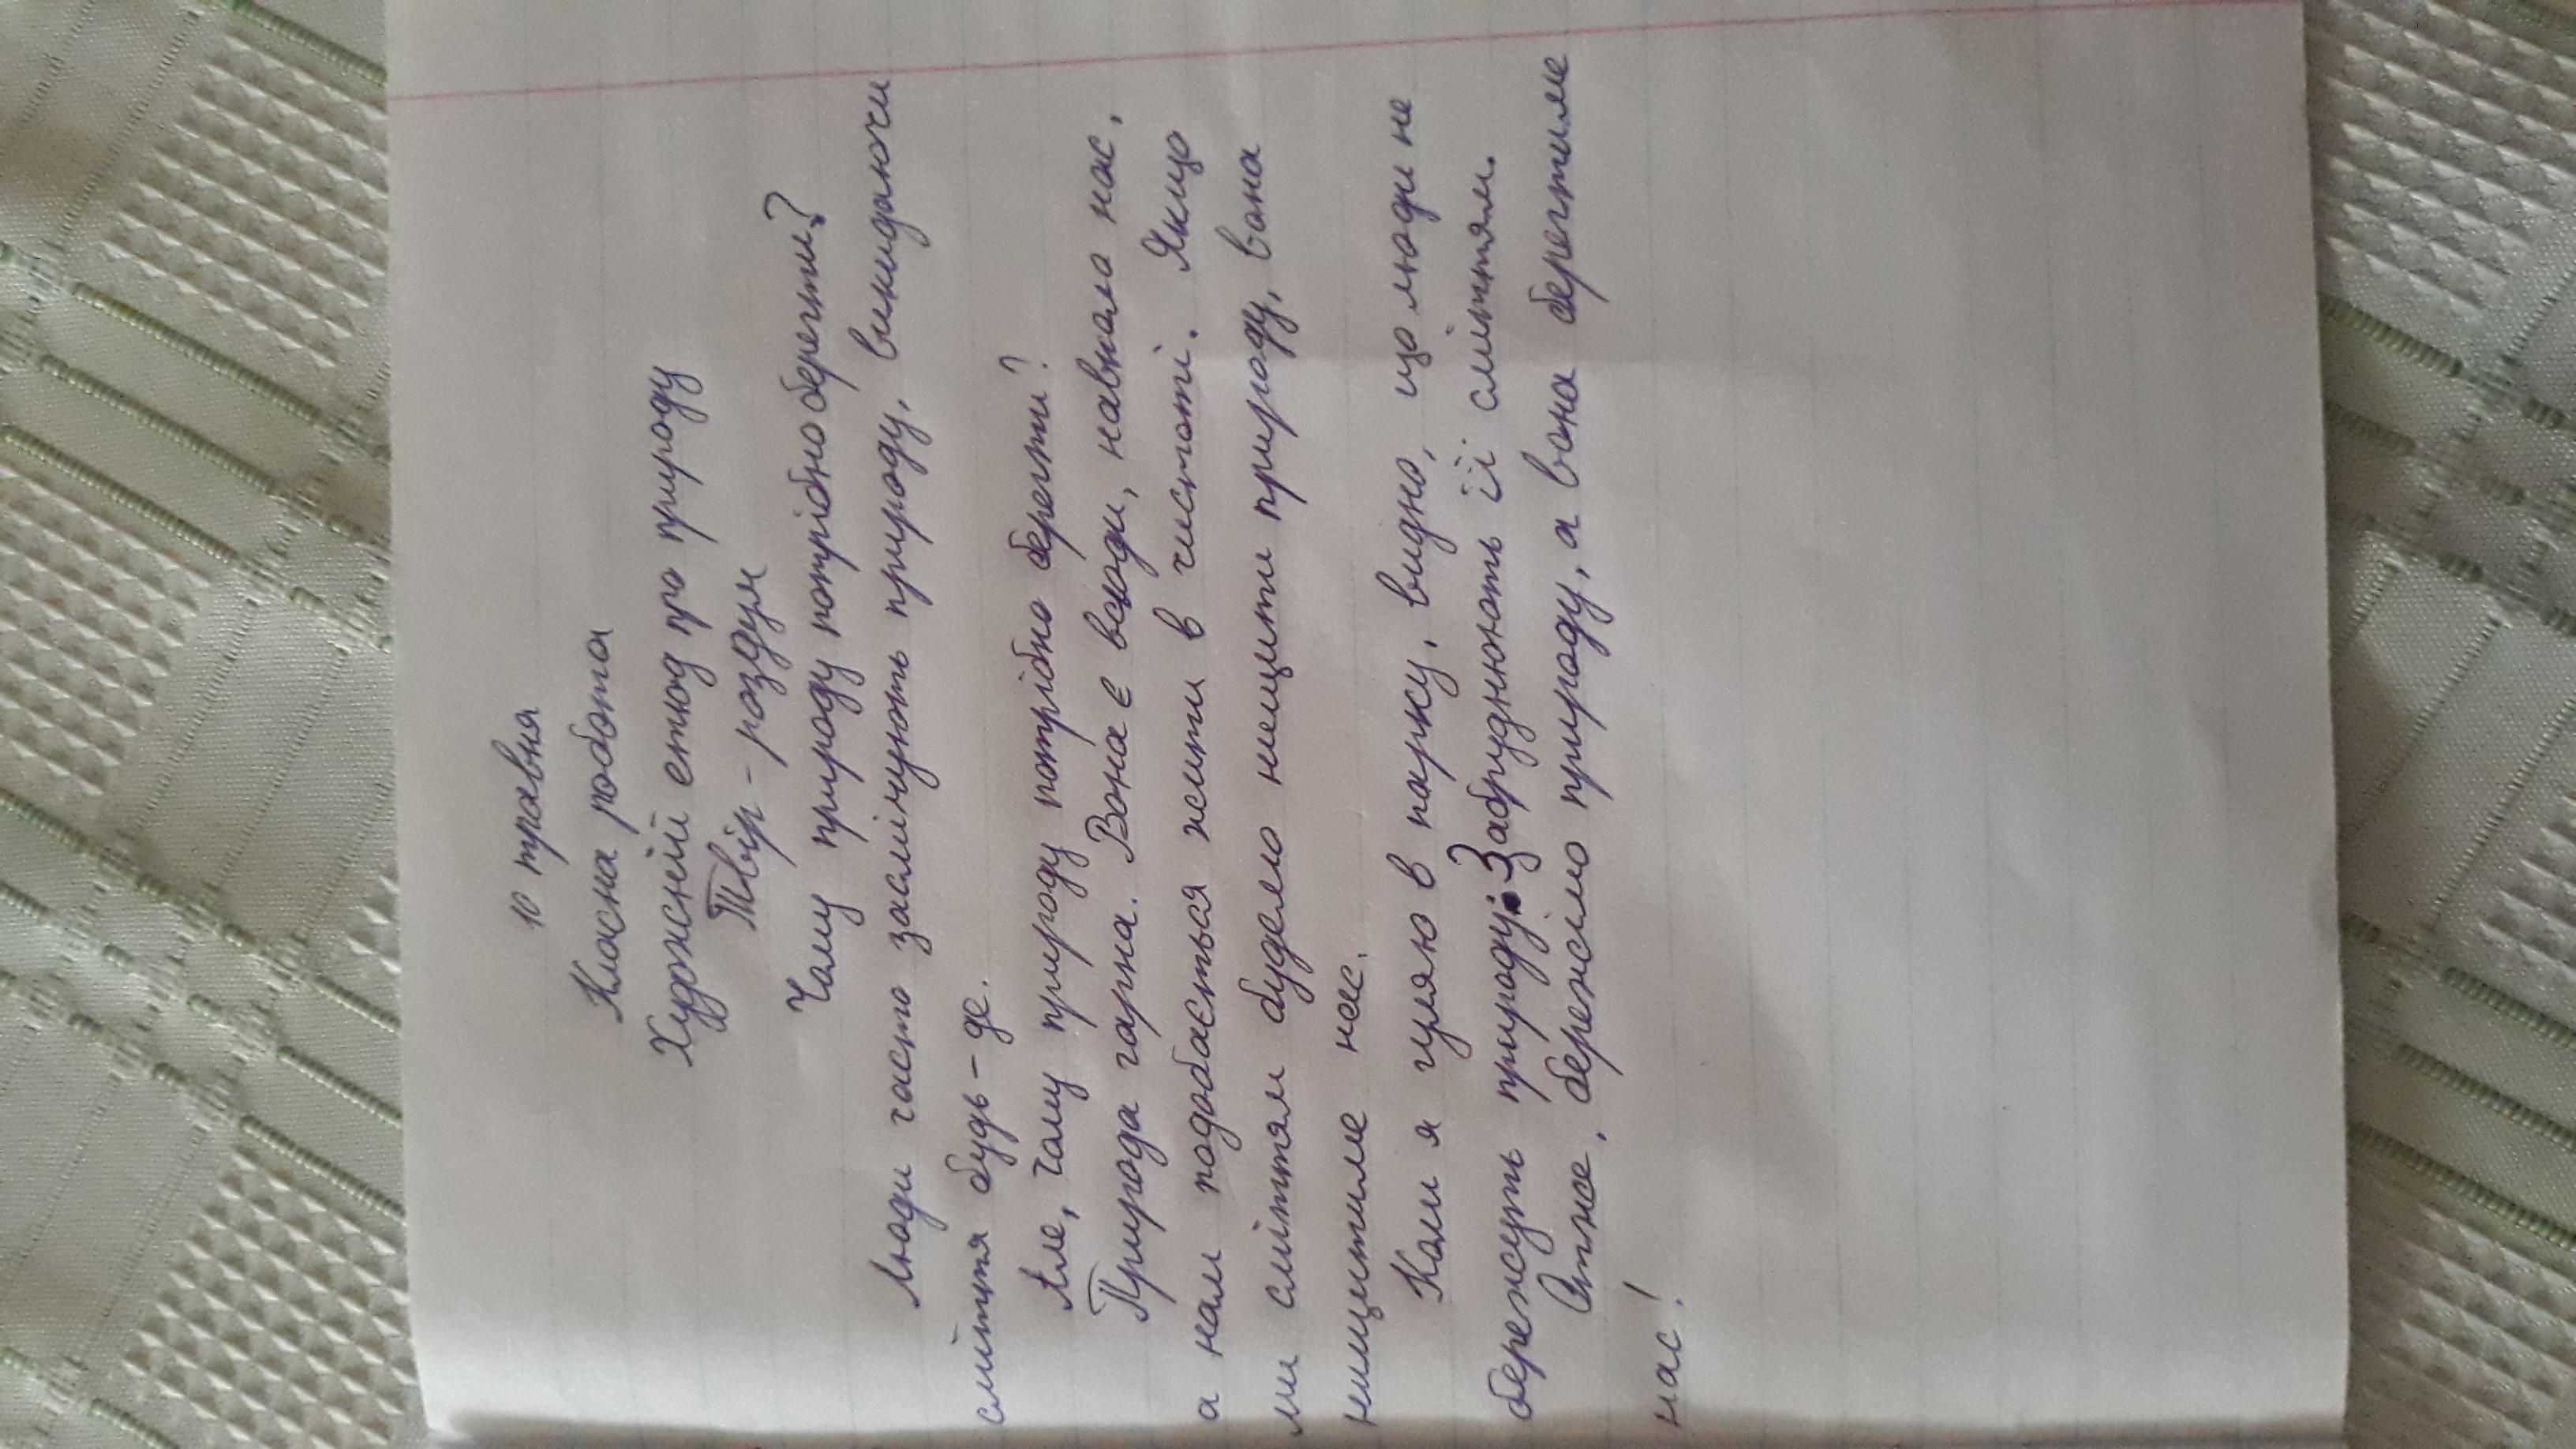 10 травня
Класна робота
Художній етюд про природу
Твір - роздум
Чому природу потрібно берегти?
Люди часто засмічують природу, викидаючи
сміття будь - де.
Але, чому природу потрібно берегти?
Природа гарна. Вона є всюди, навколо нас,
а нам подобається жити в чистоті. Якщо
ми сміттям будемо нищити природу, вона
нищитиме нас.
Коли я гуляю в парку, видно, що люди не
бережуть природу. Забруднюють її сміттям.
Отже, бережімо природу, а вона берегтиме
нас!